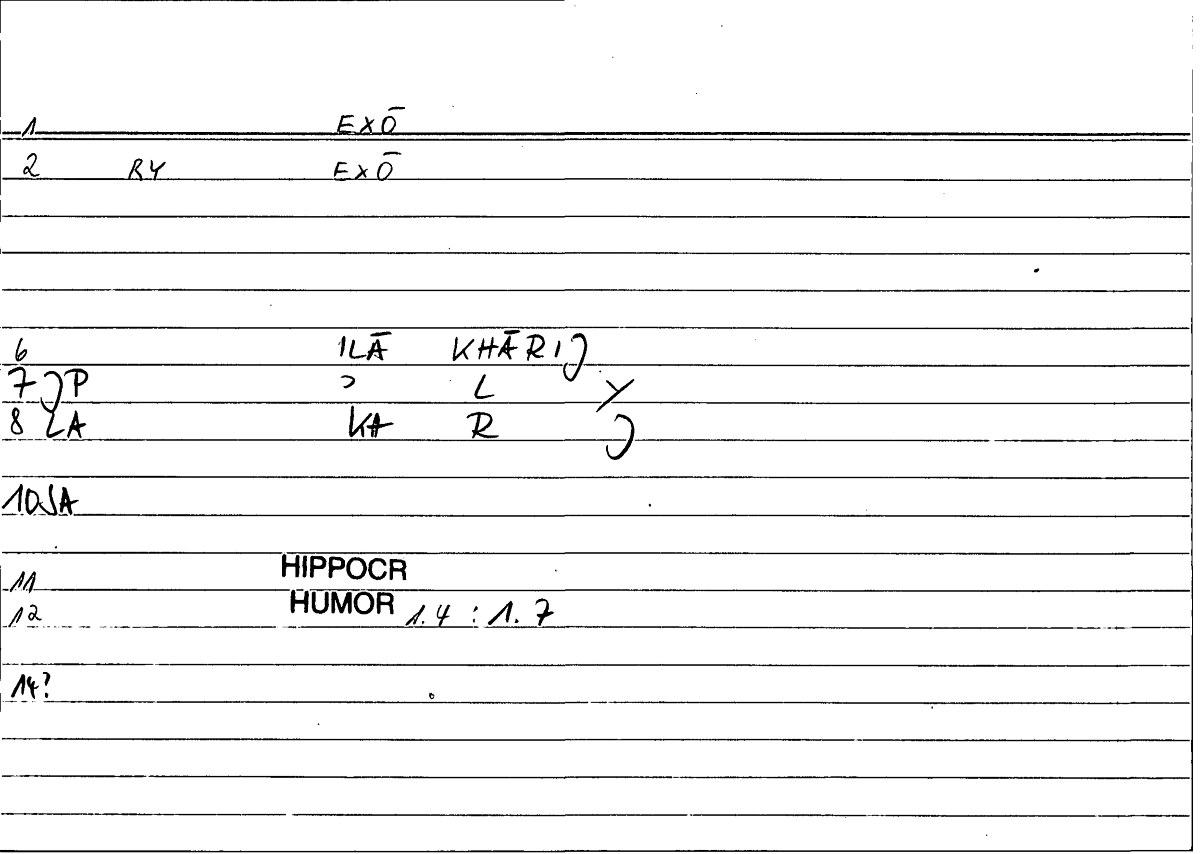 1 EXŌ
2 RY EXŌ
6 ILĀ KHĀRIJ
7 JP ↄ L Y
8 LA KA R J
10 SA
11 HIPPOCR
12 HUMOR 1.4 : 1.7
14?